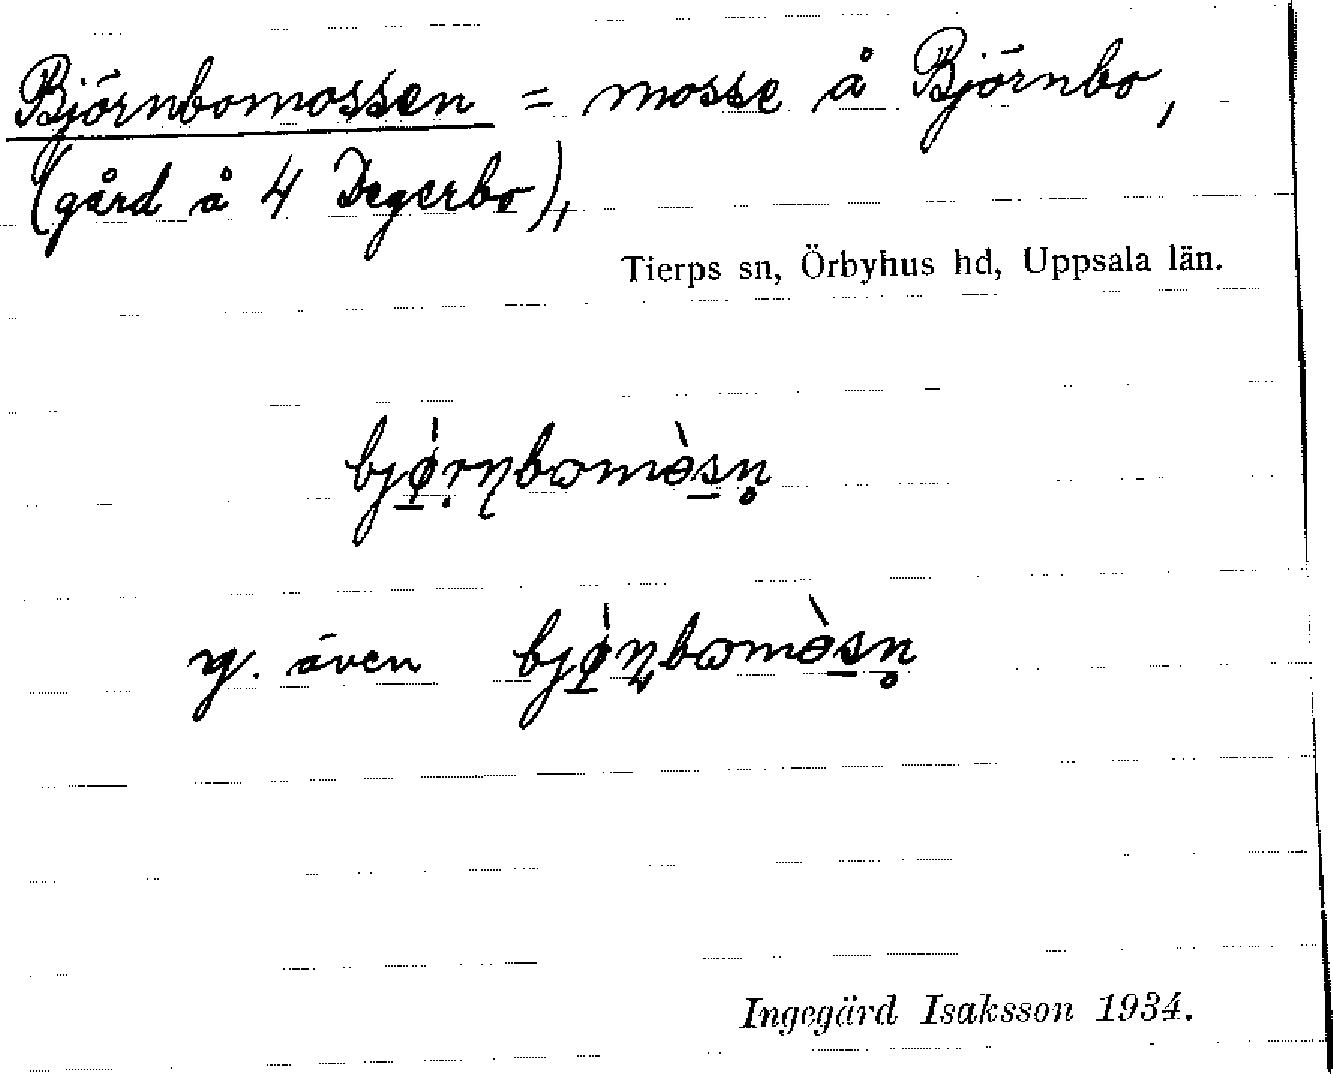 Björnbomossen = mosse å Björnbo,
(gård å 4 Degerbo),
Tierps sn, Örbyhus hd, Uppsala län.
även
Ingegärd Isaksson 1934.